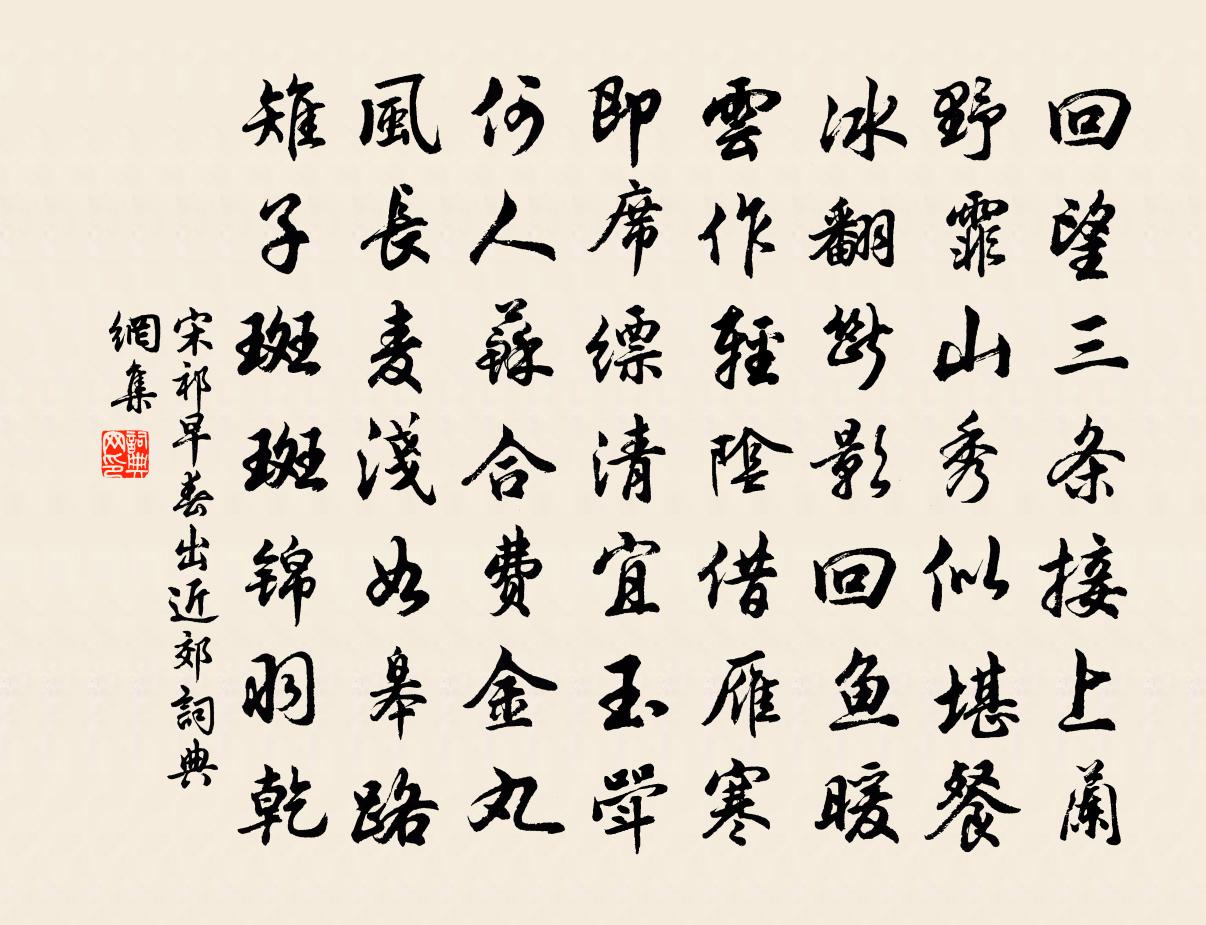 回望三条接上蘭
野霏山秀似堪餐
冰翻斷影回魚暖
雲作輕陰借雁寒
即席縹清宜玉斝
何人蘇合費金丸
風長麦淺如皋路
雉子斑斑錦羽乾
宋祁早春出近郊詞典
網集
詞典
网印